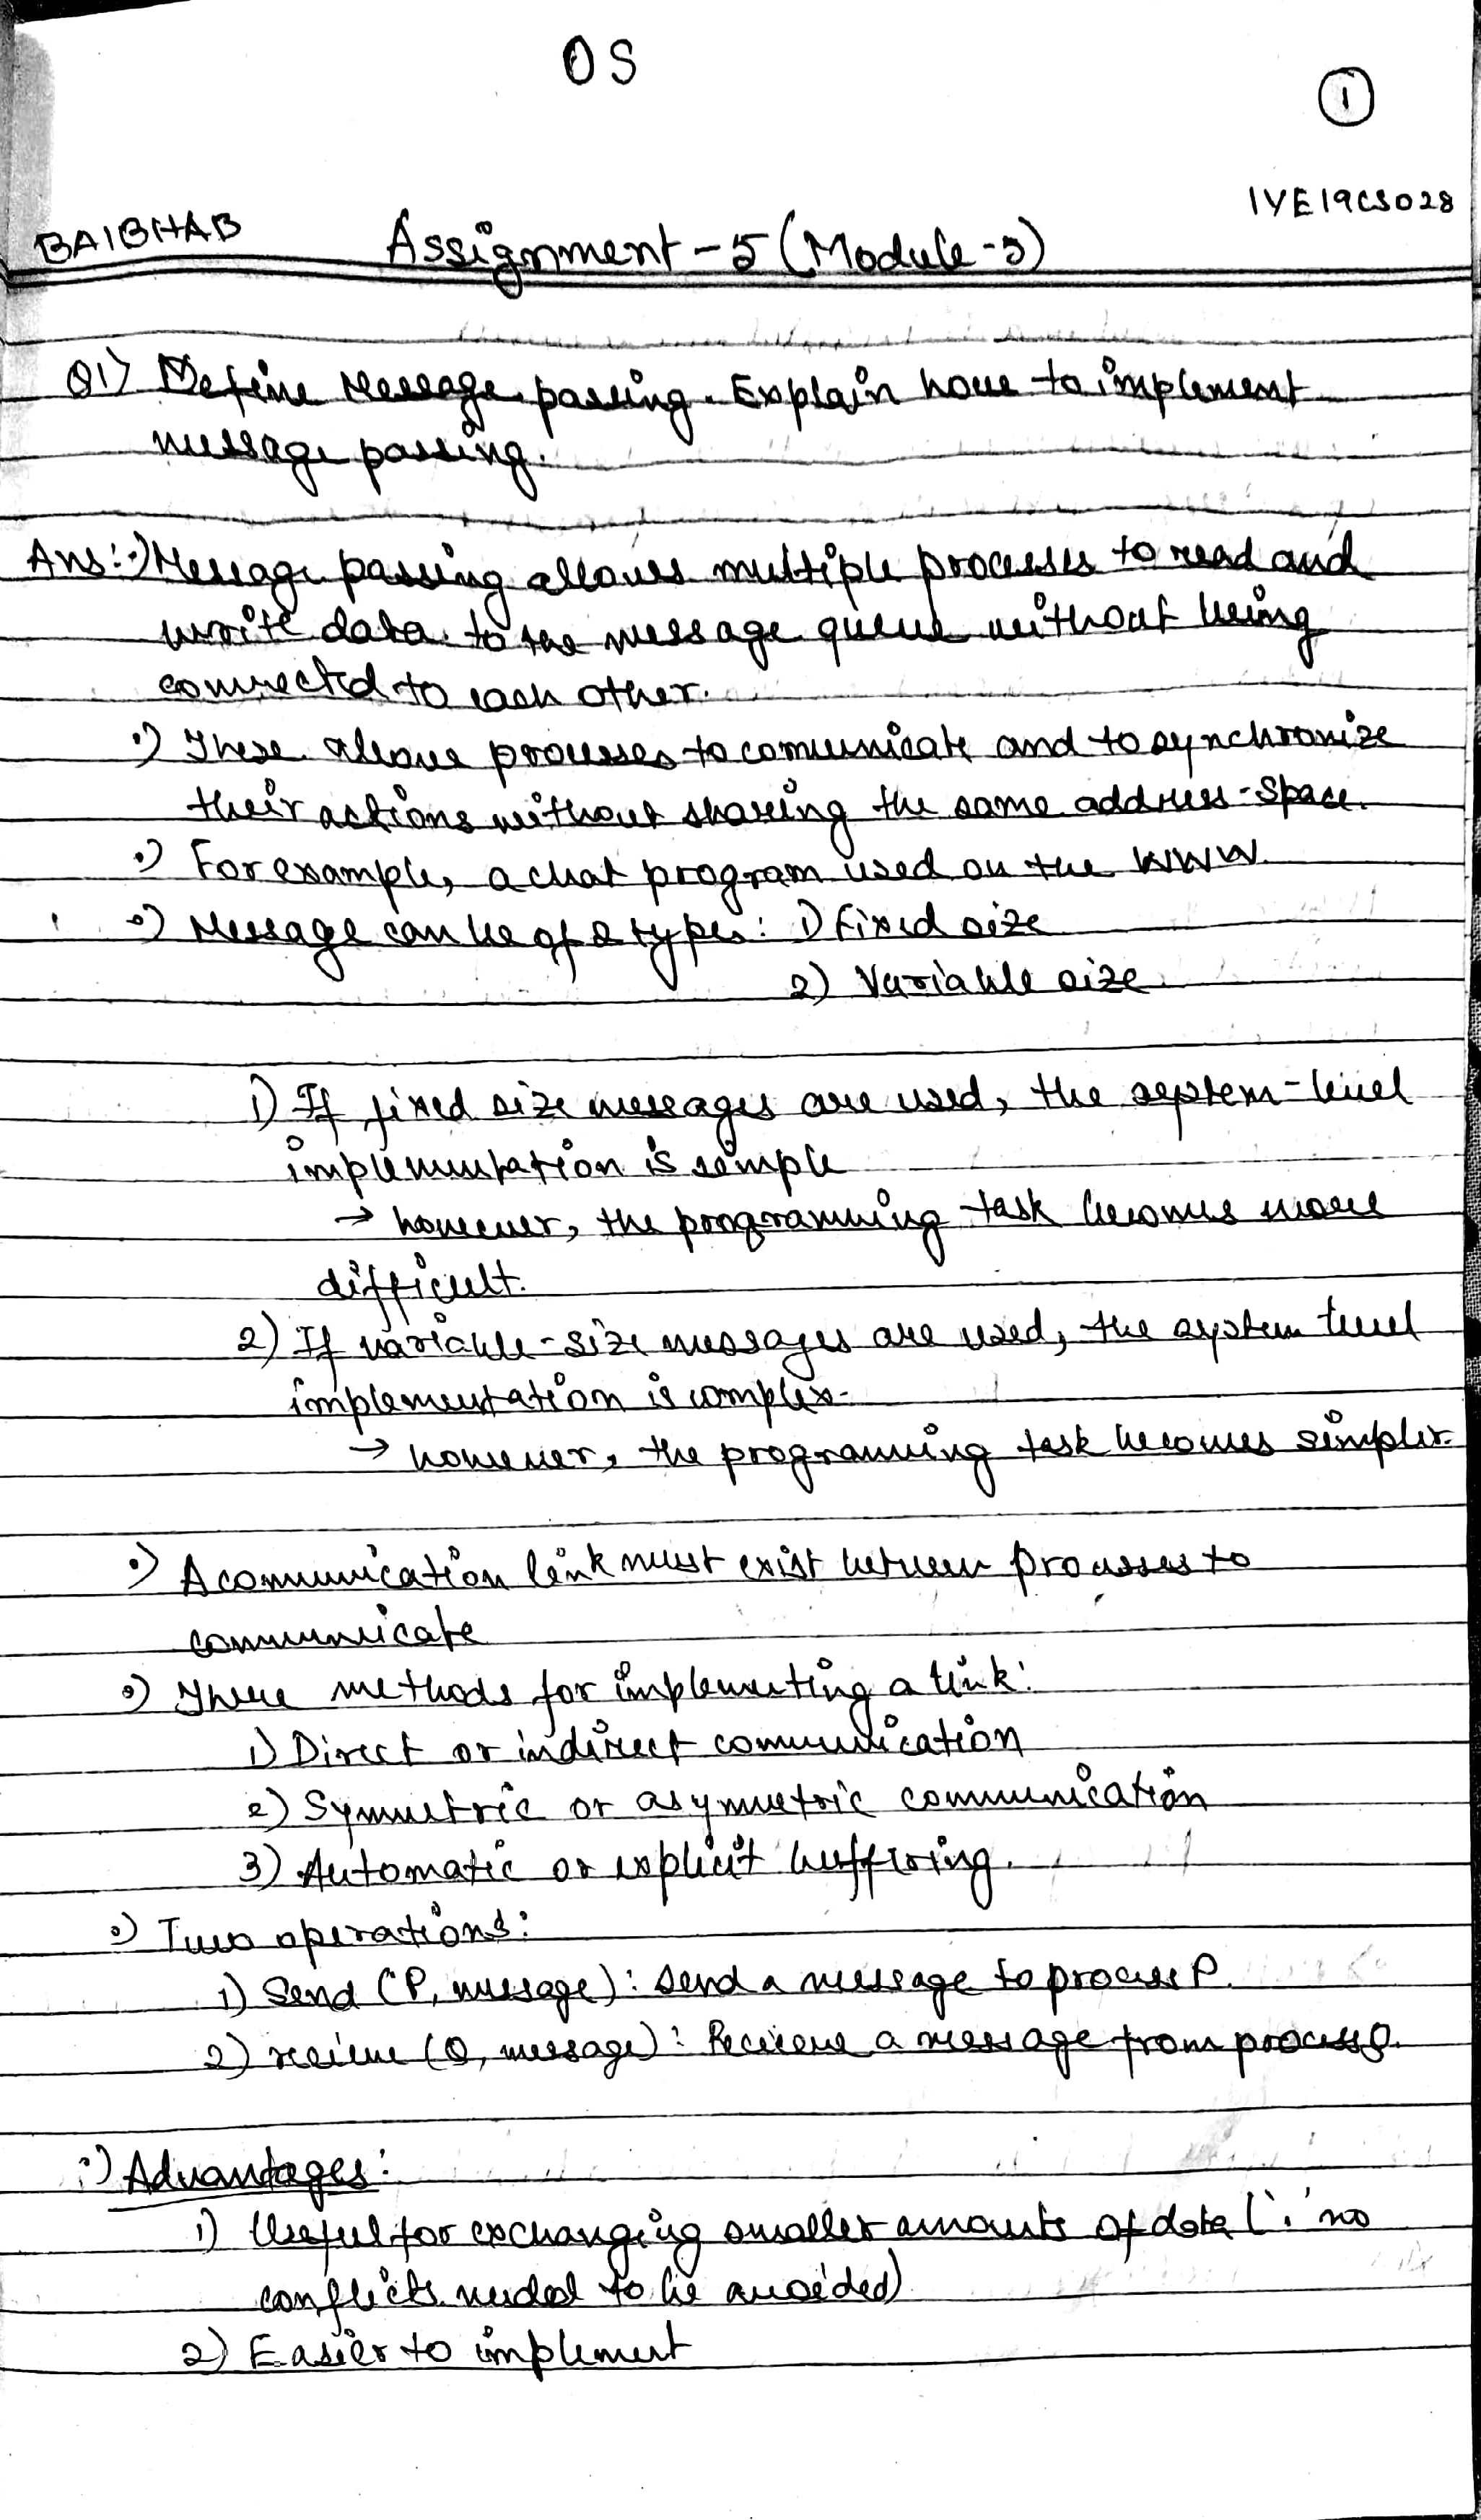 OS
1
1YE19CS028
BAIBHAB
Assignment-5 (Module-5)
Q1) Define Message passing. Explain how to implement
message passing.
Ans:·) Message passing allows multiple processes to read and
write data to the message queue without being
connected to each other.
·) These allows processes to communicate and to synchronize
their actions without sharing the same address-space.
·) For example, a chat program used on the WWW.
·) Message can be of 2 types: 1) fixed size
2) Variable size
1) If fixed size messages are used, the system-level
implementation is simple
→ however, the programming task becomes more
difficult.
2) If variable-size messages are used, the system level
implementation is complex.
→ however, the programming task becomes simpler.
·) A communication link must exist between processes to
communicate
·) Three methods for implementing a link:
1) Direct or indirect communication
2) Symmetric or asymmetric communication
3) Automatic or explicit buffering.
·) Two operations:
1) Send (P, message): Send a message to process P.
2) receive (Q, message): Receieve a message from process Q.
·) Advantages:
1) Useful for exchanging smaller amounts of data (∵ no
conflicts needed to be avoided)
2) Easier to implement